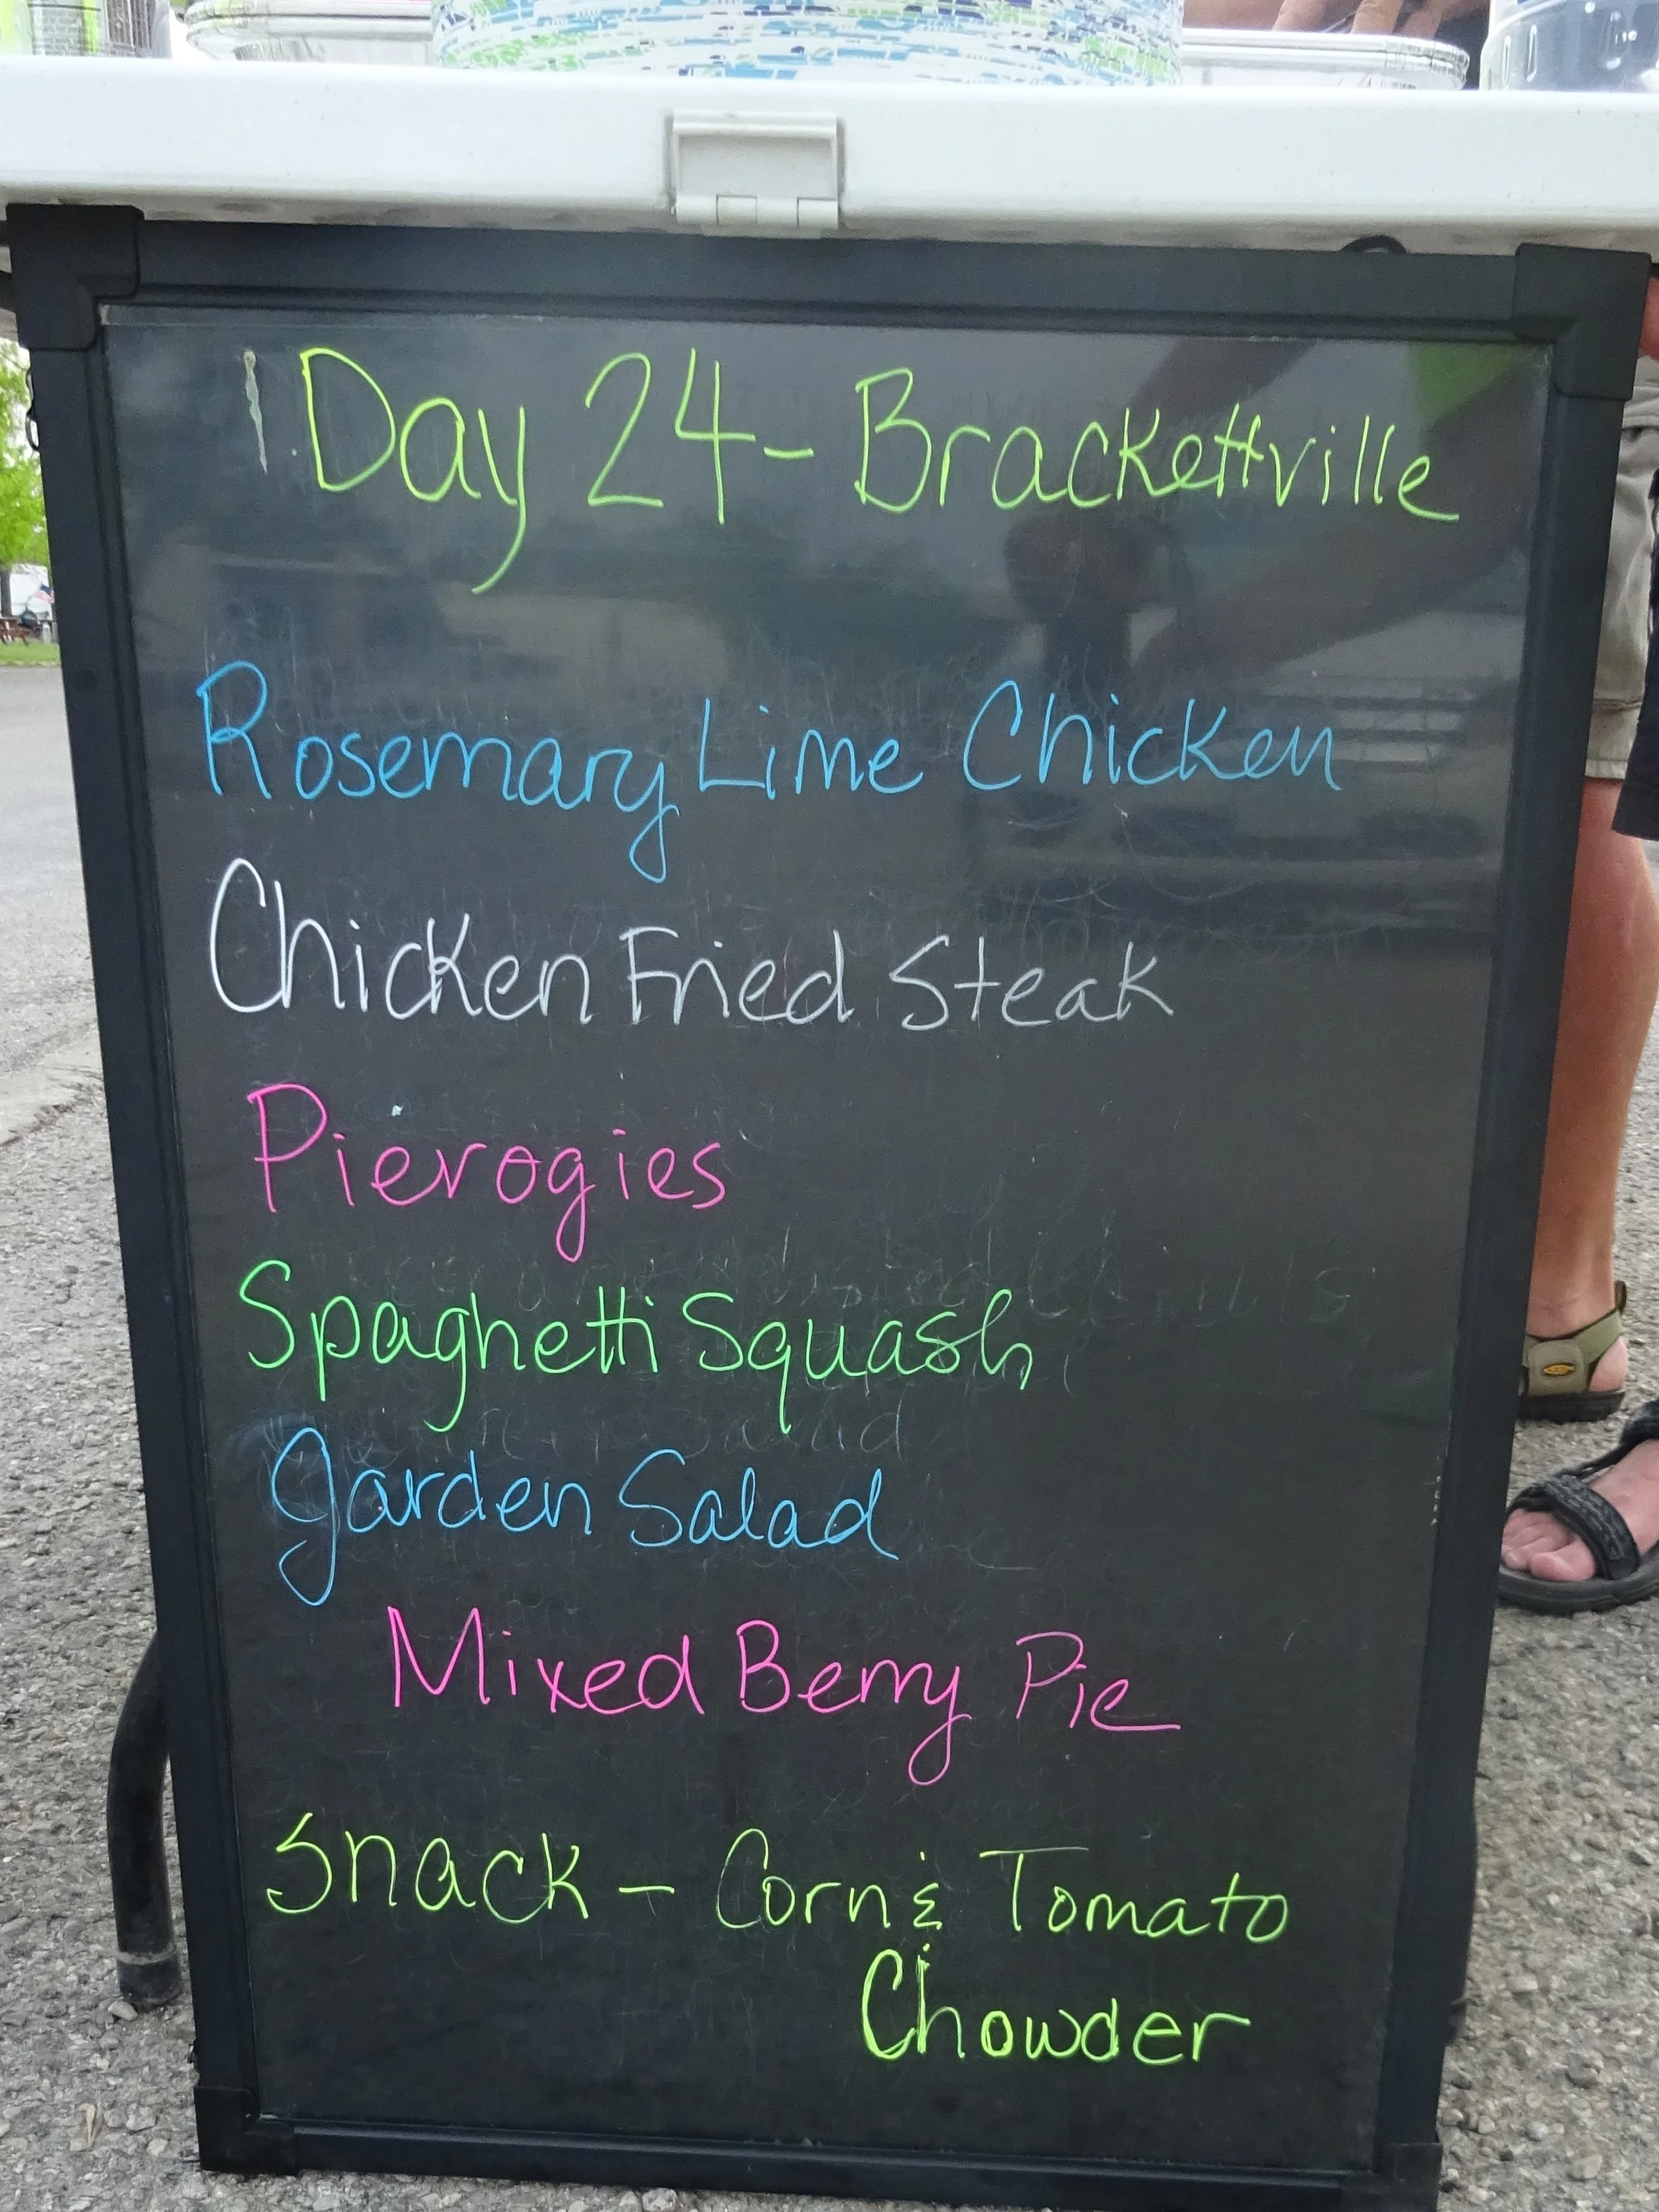 Day 24 - Brackettville
Rosemary Lime Chicken
Chicken Fried Steak
Pierogies
Spaghetti Squash
Garden Salad
Mixed Berry Pie
Snack - Corn & Tomato
Chowder